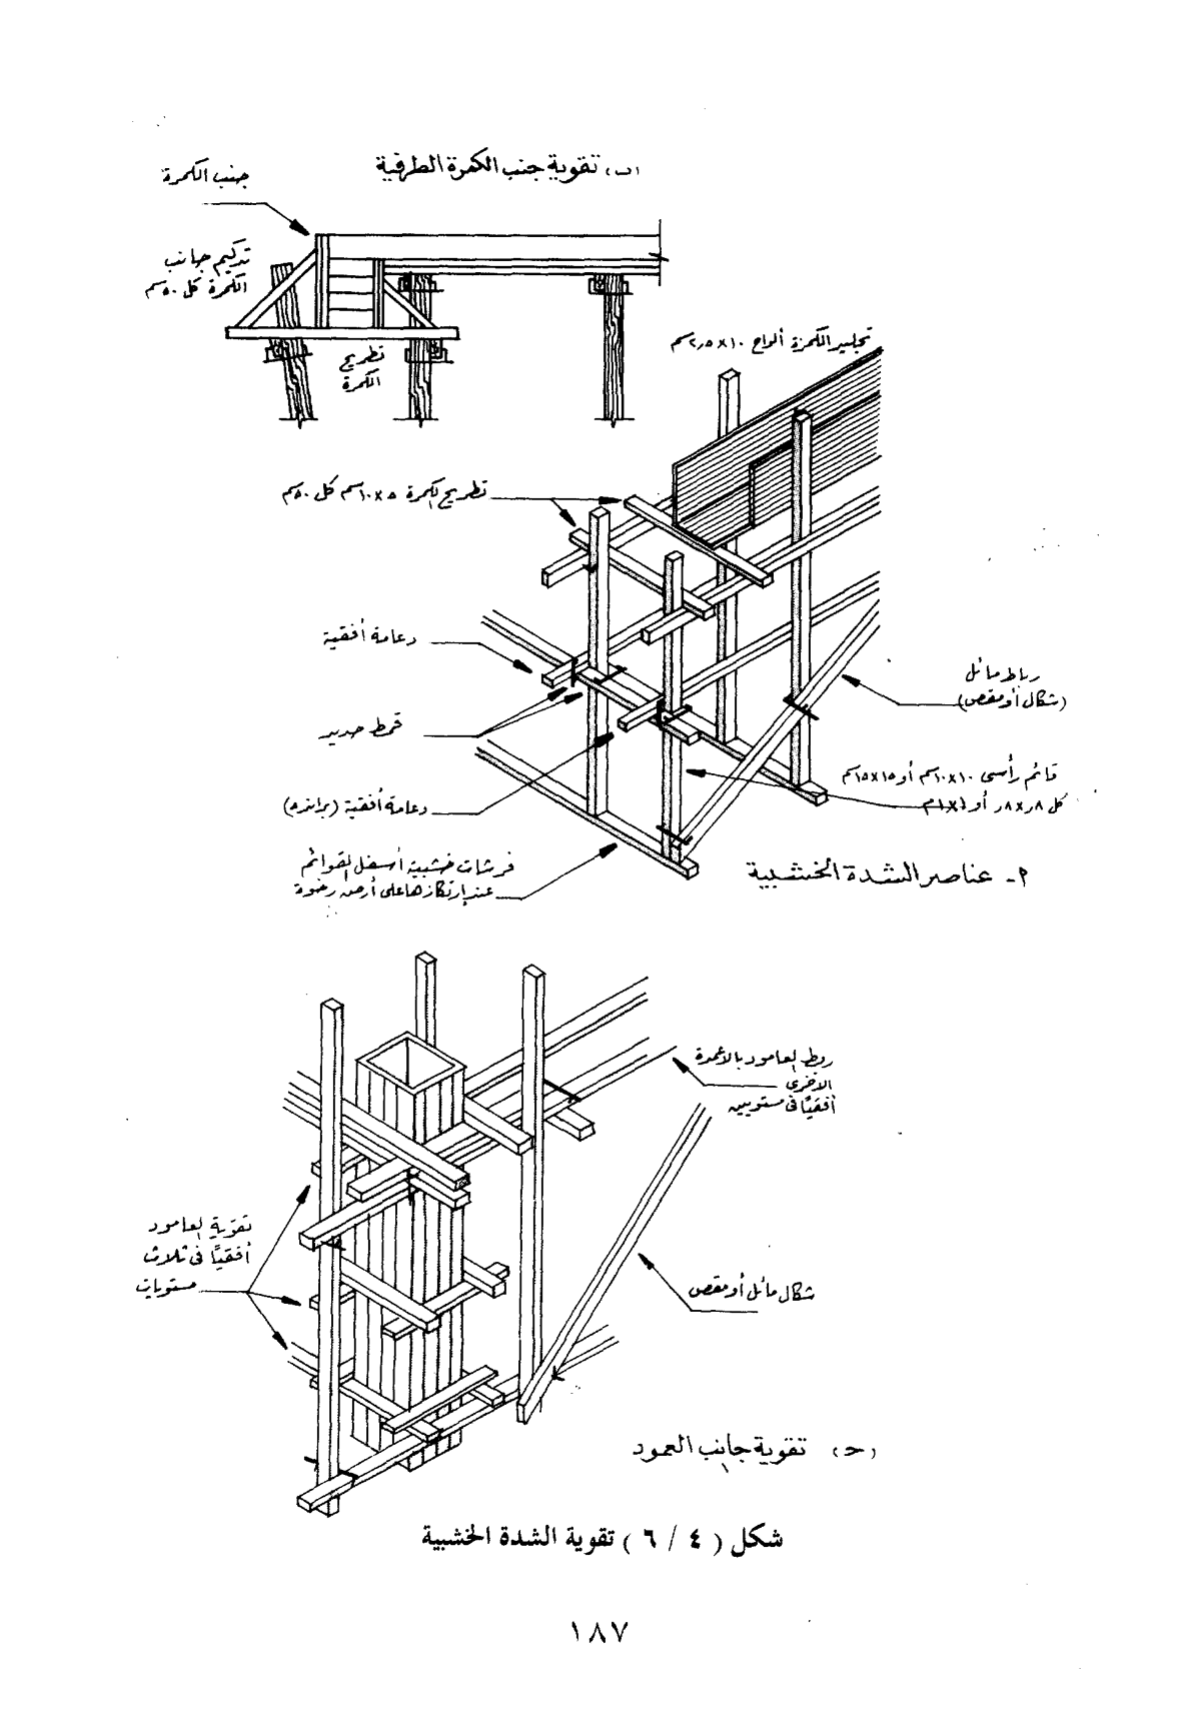 (ب) تقوية جنب الكمرة الطرفية
جنب الكمرة
تدكيم جانب
الكمرة كل ٥٠سم
تطريح
الكمرة
تجليد الكمرة ألواح ١٠×٢٫٥سم
تطريح الكمرة ٥×١٠سم كل ٥٠سم
دعامة أفقية
رباط مائل
(شكال أو مقص)
قمط حديد
قائم رأسى ١٠×١٠سم أو ١٥×١٥سم
كل ٨ر×٨ر أو ١×١م
دعامة أفقية (براندة)
فرشات خشبية أسفل القوائم
عند إرتكازها على أرض رخوة
٢- عناصر الشدة الخشبية
ربط العامود بالأعمدة
الأخرى
أفقيًا فى مستويين
تقوية العامود
أفقيًا فى ثلاث
مستويات
شكال مائل أو مقص
(حـ) تقوية جانب العمود
شكل ( ٤ / ٦ ) تقوية الشدة الخشبية
١٨٧